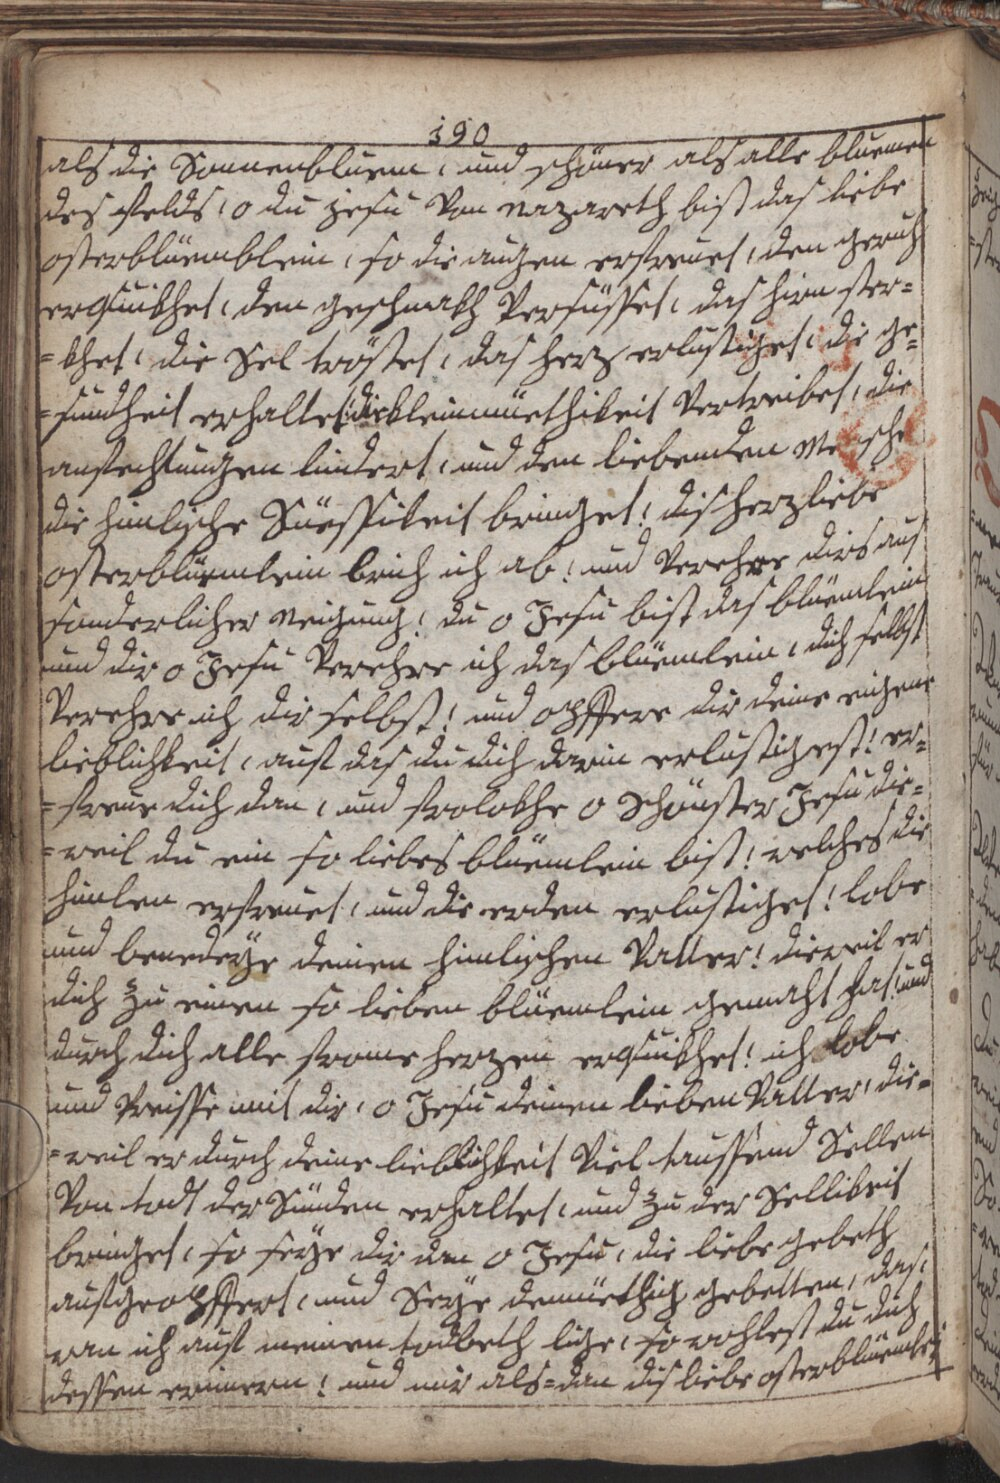 190
als die Sonnenbluem, und schöner als alle bluemen
des Felds, o du Jesu Von Nazareth bist das liebe
osterblüemblein, so die augen erfreuet, den geruch
erquikhet, den geschmakh Versüsset, das hirn ster=
=khet, die Sel tröstet, das herz erlustiget, die ge=
=sundheit erhaltet, die kleinmüethikeit Vertreibet, die
anfechtungen lindert, und den liebenden Mensche
die himlische Süessikeit bringet! dis herzliebe
osterblüemlein brich ich ab! und Verehre dirs aus
sonderlicher Neigung! du o Jesu bist das blüemlein
und dir o Jesu Verehre ich das blüemlein, dich selbst
Verehre ich dir selbst! und opffere dir deine eigene
lieblichkeit, auff das du dich darin erlustigest! er=
=freue dich dan, und frolokhe o Schönster Jesu die=
=weil du ein so liebes blüemlein bist! welches die
himlen erfreuet, und die erden erlustiget! lobe
und benedeÿe deinen himlischen Vatter! dieweil er
dich zu einen so lieben blüemlein gemacht hat! und
durch dich alle frome herzen erquikhet! ich lobe
und Preisse mit dir, o Jesu deinen lieben Vatter, die=
=weil er durch deine lieblichkeit Viel taussend Sellen
Von todt der Sünden erhaltet, und zu der Sellikeit
bringet, so seÿe dir dan o Jesu, die liebe gebeth
auffgeopffert, und Seÿe demüethig gebetten, das,
wan ich auff meinen todbeth lige, so wohlest du dich
dessen erinern! und mir als=dan dis liebe osterblüemlein